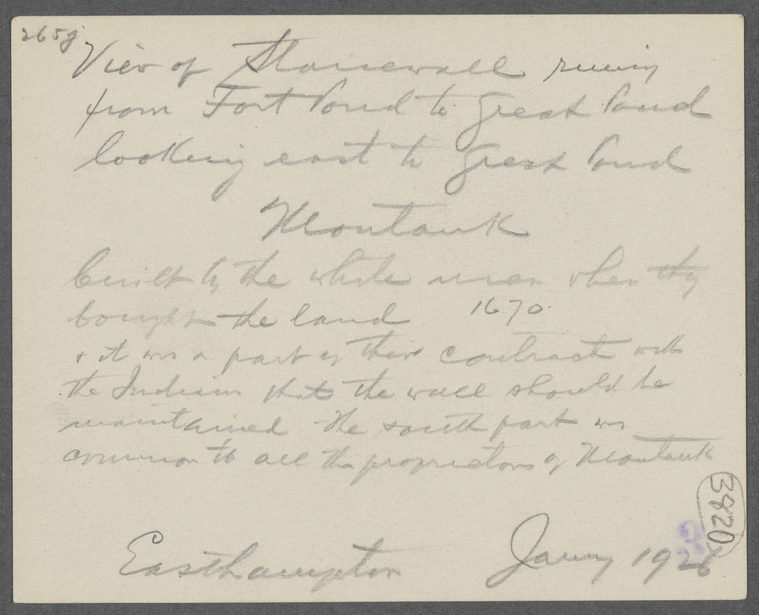 265g
View of Stonewall runing
from Fort Pond to Great Pond
looking east to Great Pond
Montauk
built by the white men when they
bought the land 1670
& it was a part of their contract with
the Indians that the wall should be
maintained The south part was
common to all the proprietors of Montauk
3820
Easthampton Jany 1926